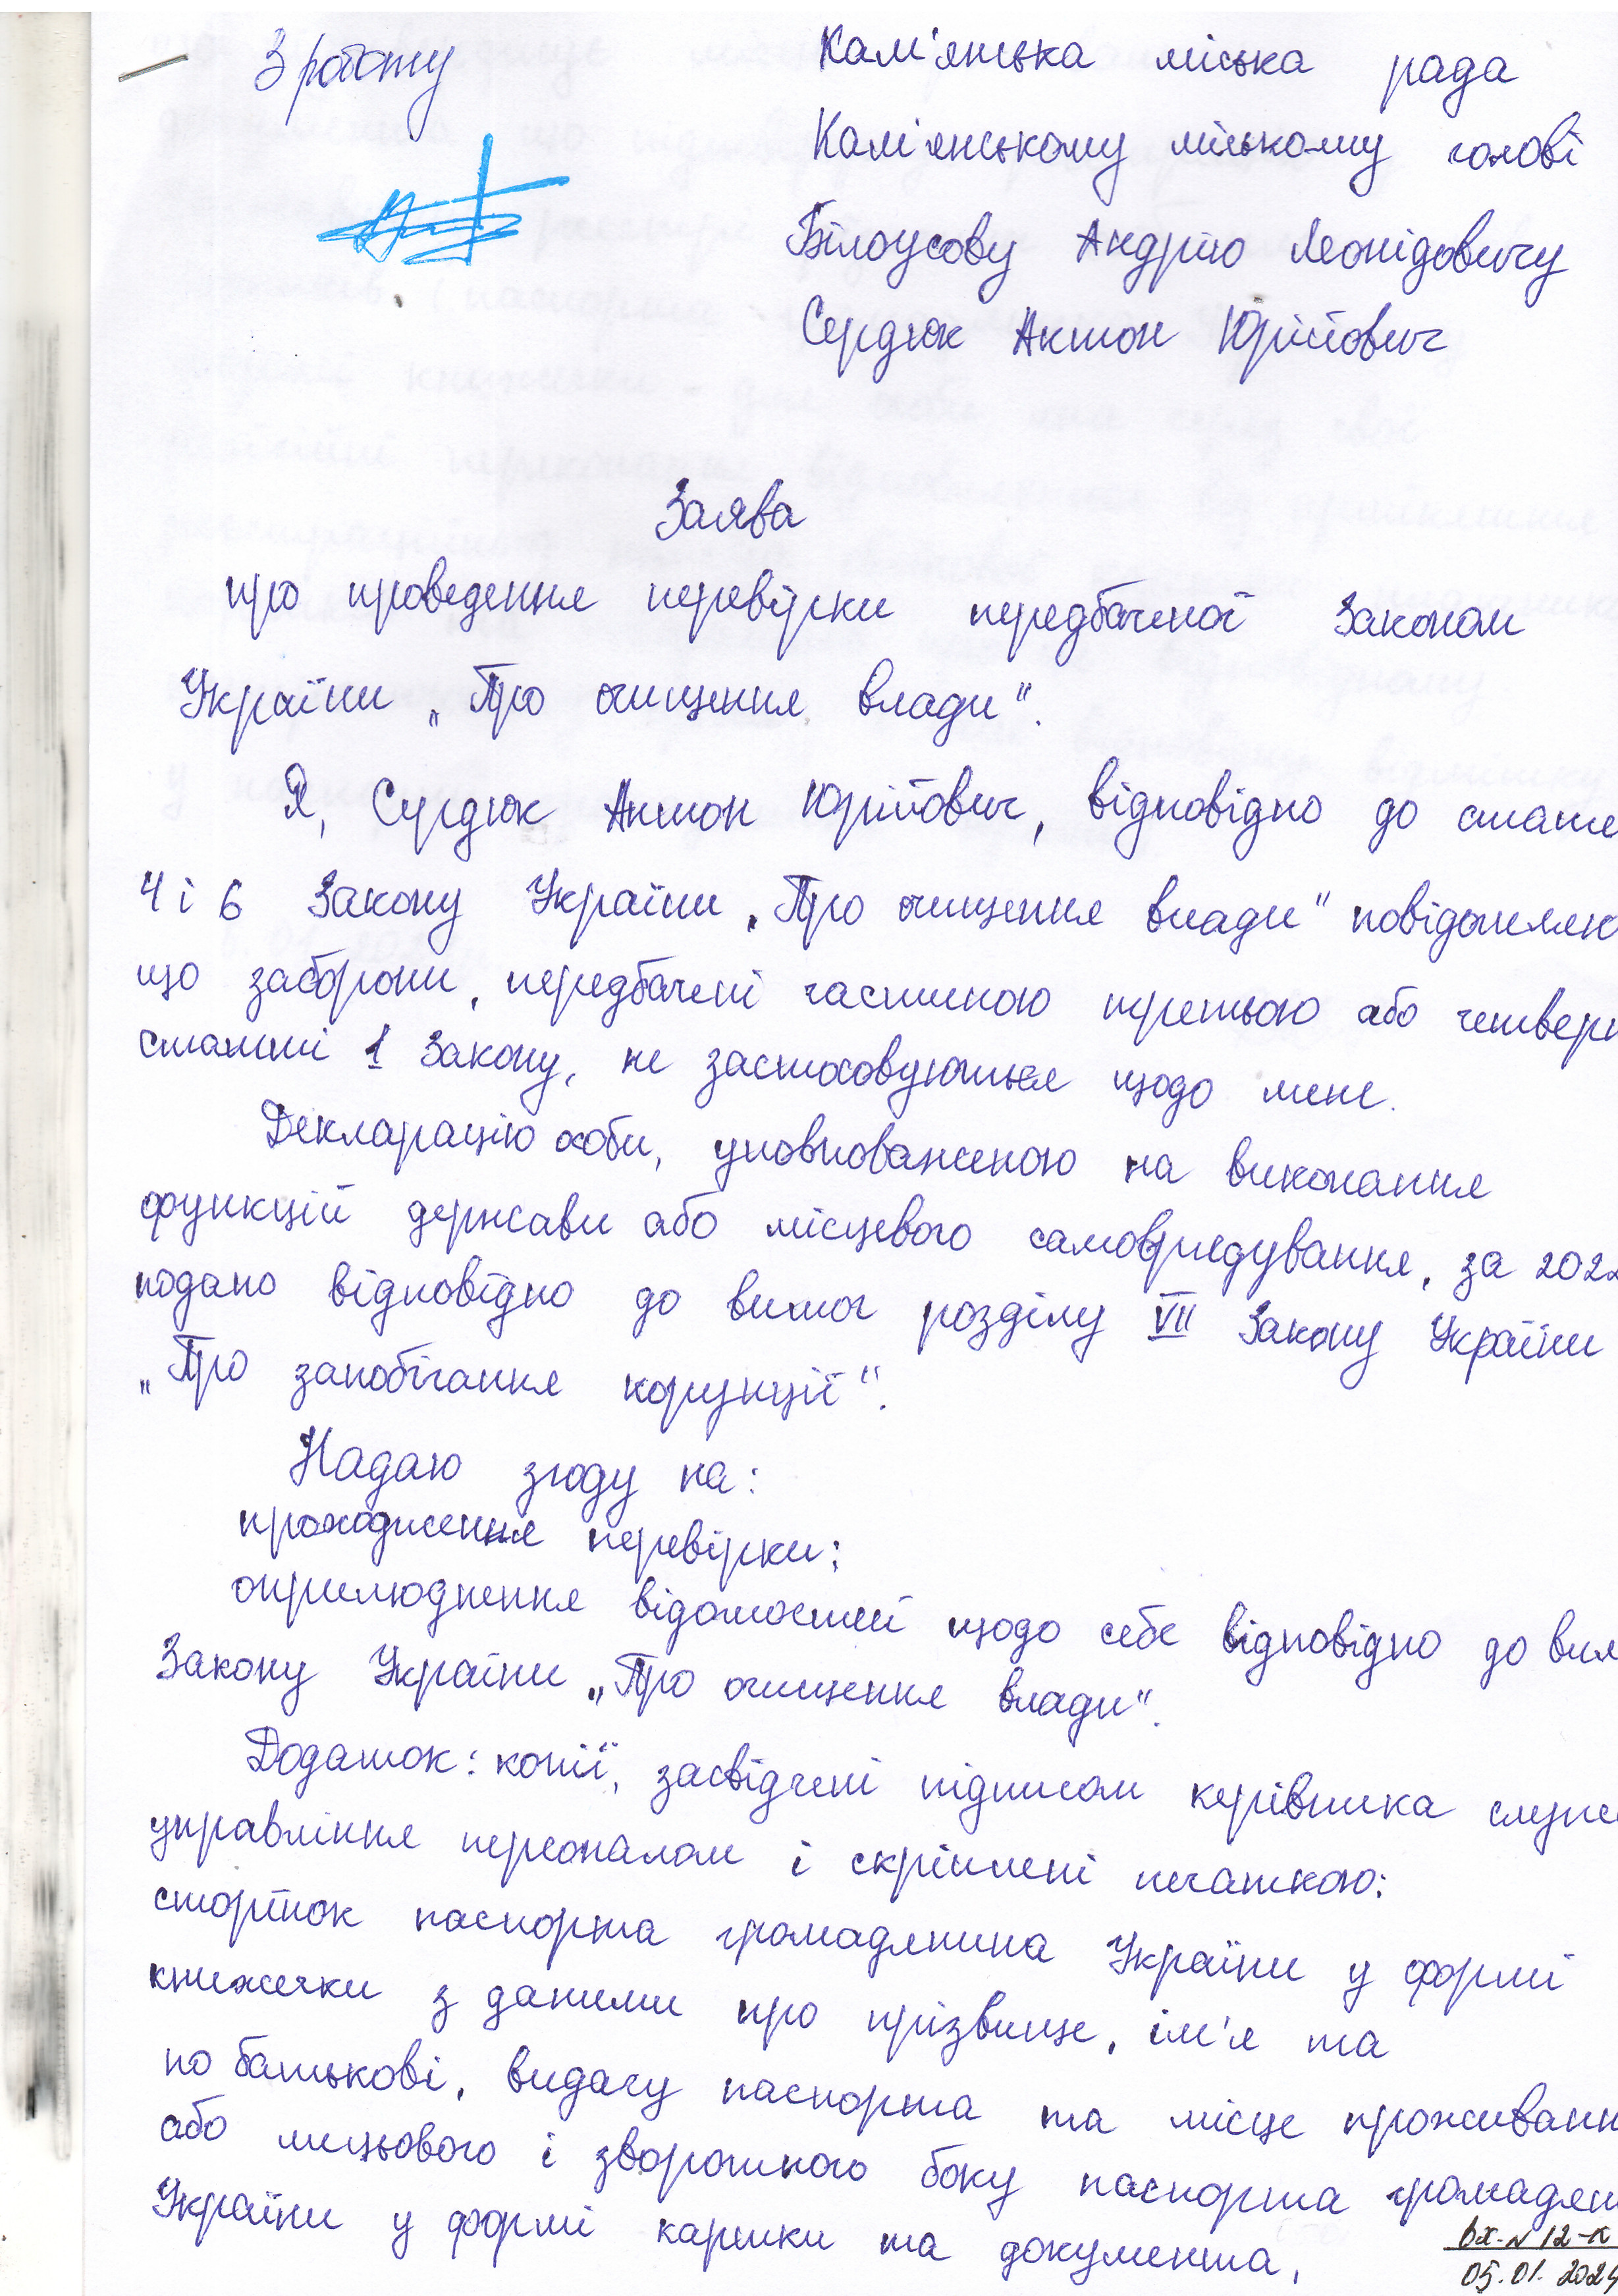 З роботу
Кам'янська міська рада
Кам'янському міському голові
Білоусову Андрію Леонідовичу
Сердюк Антон Юрійович
Заява
про проведення перевірки передбаченої Законом
України „Про очищення влади".
Я, Сердюк Антон Юрійович, відповідно до статте
4 і 6 Закону України „Про очищення влади" повідомляю
що заборони, передбачені частиною третьою або четверт
статті 1 Закону, не застосовуються щодо мене.
Декларацію особи, уповноваженою на виконання
функцій держави або місцевого самоврядування, за 2022
подано відповідно до вимог розділу VII Закону України
„Про запобігання корупції".
Надаю згоду на:
проходження перевірки;
оприлюднення відомостей щодо себе відповідно до вим
Закону України „Про очищення влади".
Додаток: копії, засвідчені підписом керівника служ
управління персоналом і скріплені печаткою:
сторінок паспорта громадянина України у формі
книжечки з даними про прізвище, ім'я та
по батькові, видачу паспорта та місце проживанн
або лицьового і зворотного боку паспорта громадян
України у формі картки та документа,
вх. № 12-к
05.01.2024